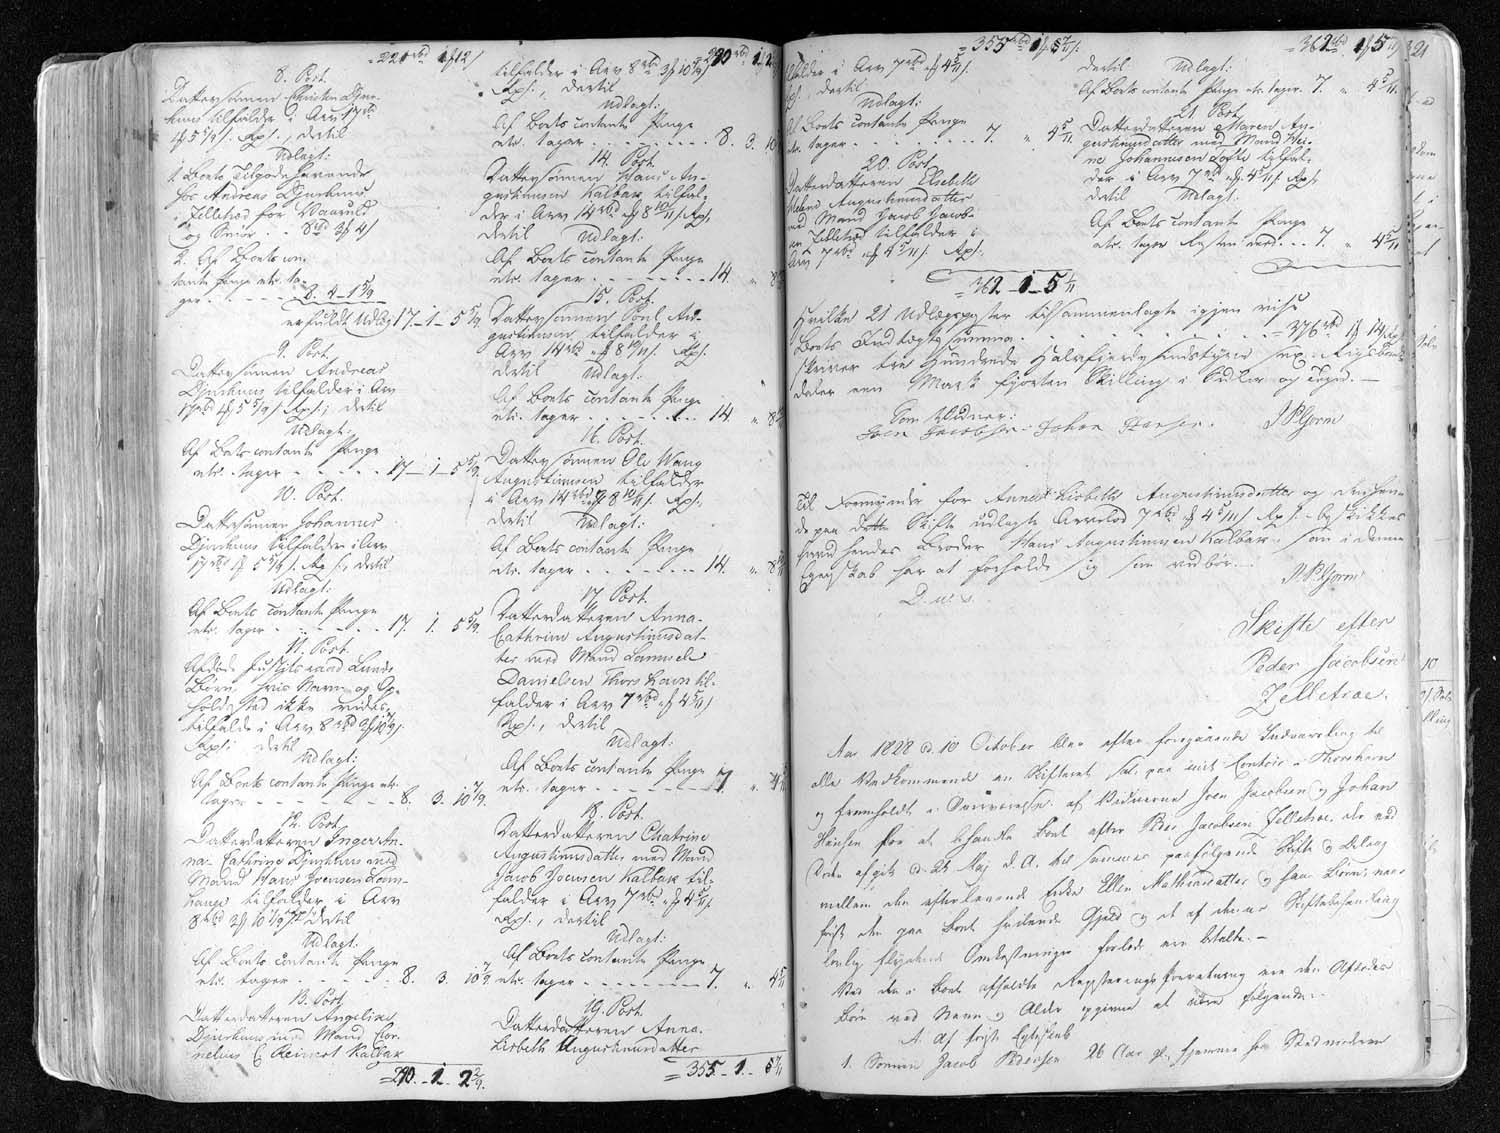 221 rbd 1 ʃ 12
8. Post.
Dattersønnen Christen Djur-
huus tilfalder i Arv 17 rbd
1ʃ 5 5/9 ʃ. Rpʃ., dertil
Udlagt:
1. Boets Tilgodehavende
hos Andreas Djurhuus
i Zelletræ for
og 8 rbd 3ʃ 4ʃ
2. Af Boets con-
tante Penge etc. ta-
ger . . . . . 8. 4. 1 5/9
erfuldt Udlæg 17. 1. 5 5/9.
9. Post.
Dattersønnen Andreas
Djurhuus tilfalder i Arv
17 rbd 1ʃ 5 5/9 ʃ. Rpʃ.; dertil
Udlagt:
Af Boets contante Penge
etc. tager . . . . . . 17. 1. 5 5/9.
10. Post.
Dattersønnen Johannes
Djurhuus tilfalder i Arv
17 rbd 1ʃ 5 5/9 ʃ. Rpʃ., dertil
Udlagt:
Af Boets contante Penge
etc. tager . . . . . . 17. 1. 5 5/9.
11. Post.
Afdøde Justitsraad Lunds
Børn, hvis Navn og Op-
holdsted ikke vides,
tilfalde i Arv 8 rbd 3ʃ 10 7/9 ʃ.
Rpʃ. dertil
Udlagt:
Af Boets contante Penge etc.
tager . . . . . . . . 8. 3. 10 7/9.
12. Post.
Datterdatteren Inger An-
na Cathrine Djurhuus med
Mand Hans Joensen Lam-
hauge tilfalder i Arv
8 rbd 3ʃ 10 7/9 ʃ dertil
Udlagt:
Af Boets contante Penge
etc. tager . . . . . . 8. 3. 10 7/9.
13. Post.
Datterdatteren Angeline
Djurhuus med Mand Cor-
nelius C. Reinert Kalbak
290. 1. 2 2/9.
290 rbd 1ʃ 2
tilfalder i Arv 8 rbd 3ʃ 10 7/9 ʃ
Rpʃ., dertil
Udlagt:
Af Boets contante Penge
etc. tager . . . . . . . . 8. 3. 10
14. Post.
Dattersønnen Hans Au-
gustinusen Kalbak tilfal-
der i Arv 14 rbd „ʃ 8 10/11 ʃ. Rpʃ.
dertil Udlagt:
Af Boets contante Penge
etc. tager . . . . . . . 14. „ 8
15. Post.
Dattersønnen Poul Au-
gustinusen tilfalder i
Arv 14 rbd „ʃ 8 10/11 ʃ. Rpʃ.
dertil Udlagt:
Af Boets contante Penge
etc. tager . . . . . . . 14. „ 8
16. Post.
Dattersønnen Ole Wang
Augustinusen tilfalder
i Arv 14 rbd „ʃ 8 10/11 ʃ. Rpʃ.
dertil Udlagt:
Af Boets contante Penge
etc. tager . . . . . . . 14. „ 8
17. Post.
Datterdatteren Anna
Cathrine Augustinusdat-
ter med Mand
Danielsen Thorshavn til-
falder i Arv 7 rbd „ʃ 4 5/11 ʃ
Rpʃ., dertil
Udlagt:
Af Boets contante Penge
etc. tager . . . . . . . 7. „ 4
18. Post.
Datterdatteren Chatrine
Augustinusdatter med Mand
Jacob Joensen Kalbak til-
falder i Arv 7 rbd „ʃ 4 5/11 ʃ.
Rpʃ., dertil
Udlagt:
Af Boets contante Penge
etc. tager . . . . . . . 7. „ 4 5/11
19. Post.
Datterdatteren Anna
Lisbeth Augustinusdatter
355. 1.
355 rbd 1ʃ
tilfalder i Arv 7 rbd „ʃ 4 5/11 ʃ.
Rpʃ., dertil
Udlagt:
Af Boets contante Penge
etc. tager . . . . . . . 7. „ 4 5/11.
20. Post.
Datterdatteren Elsebeth
Helene Augustinusdatter
med Mand Jacob Jacob-
sen Zelletræ tilfalder i
Arv 7 rbd „ʃ 4 5/11 ʃ. Rpʃ.
362. 1. 5
362 rbd 1ʃ 5
dertil Udlagt:
Af Boets contante Penge etc. tager. 7. „ 4 5/11.
21. Post.
Datterdatteren Maren Au-
gustinusdatter med Mand Hei-
ne Johannesen Tofte tilfal-
der i Arv 7 rbd „ʃ 4 5/11 ʃ. Rpʃ.
dertil Udlagt:
Af Boets contante Penge
etc. tager Resten med . . . 7. „ 4 5/11
Hvilke 21 Udlægsposter tilsammenlagte igjen vise
Boets Indtægtssumma . . . . . . . 376 rbd 1ʃ 14ʃ
skriver tre Hundrede Halvfjerdsindstyve sex Rigsbank-
daler een Mark fjorten Skilling i Sedler og Tegn. —
Som Vidner:
Joen Jacobsen. Johan Hansen.
Til Formynder for Anna Lisbeth Augustinusdatter og den hen-
de paa dette Skifte udlagte Arvelod 7 rbd „ʃ 4 5/11 ʃ Rpʃ. beskikkes
herved hendes Broder Hans Augustinusen Kalbak som i denne
Egenskab har at forholde sig som vedbør.
D. u. s.
Skifte efter
Peder Jacobsen
Zelletræ.
Aar 1828 d. 10 October blev efter foregaaende Indvarsling til
alle Vedkommende en Skifteret sat paa mit Contoir i Thorshavn
og fremholdt i Overværelse af Vidnerne Joen Jacobsen og Johan
Hansen for at behandle Boet efter Peder Jacobsen Zelletræ, der ved
Døden afgik d. 24 Maj d. A. til sammes paafølgende Skifte og Deling
mellem den efterlevende Enke Ellen Mathiasdatter og hans Børn, naar
først den paa Boet heftende Gjeld og de af denne Skiftebehandling
lovlig flydende Omkostninger forlods ere betalte. —
Ved den i Boet afholdte Registreringsforretning ere den Afdødes
Børn ved Navn og Alder opgivne at være følgende:
A. Af første Egteskab
1. Sønnen Jacob Pedersen 26 Aar gl., hjemme hos Stedmoderen